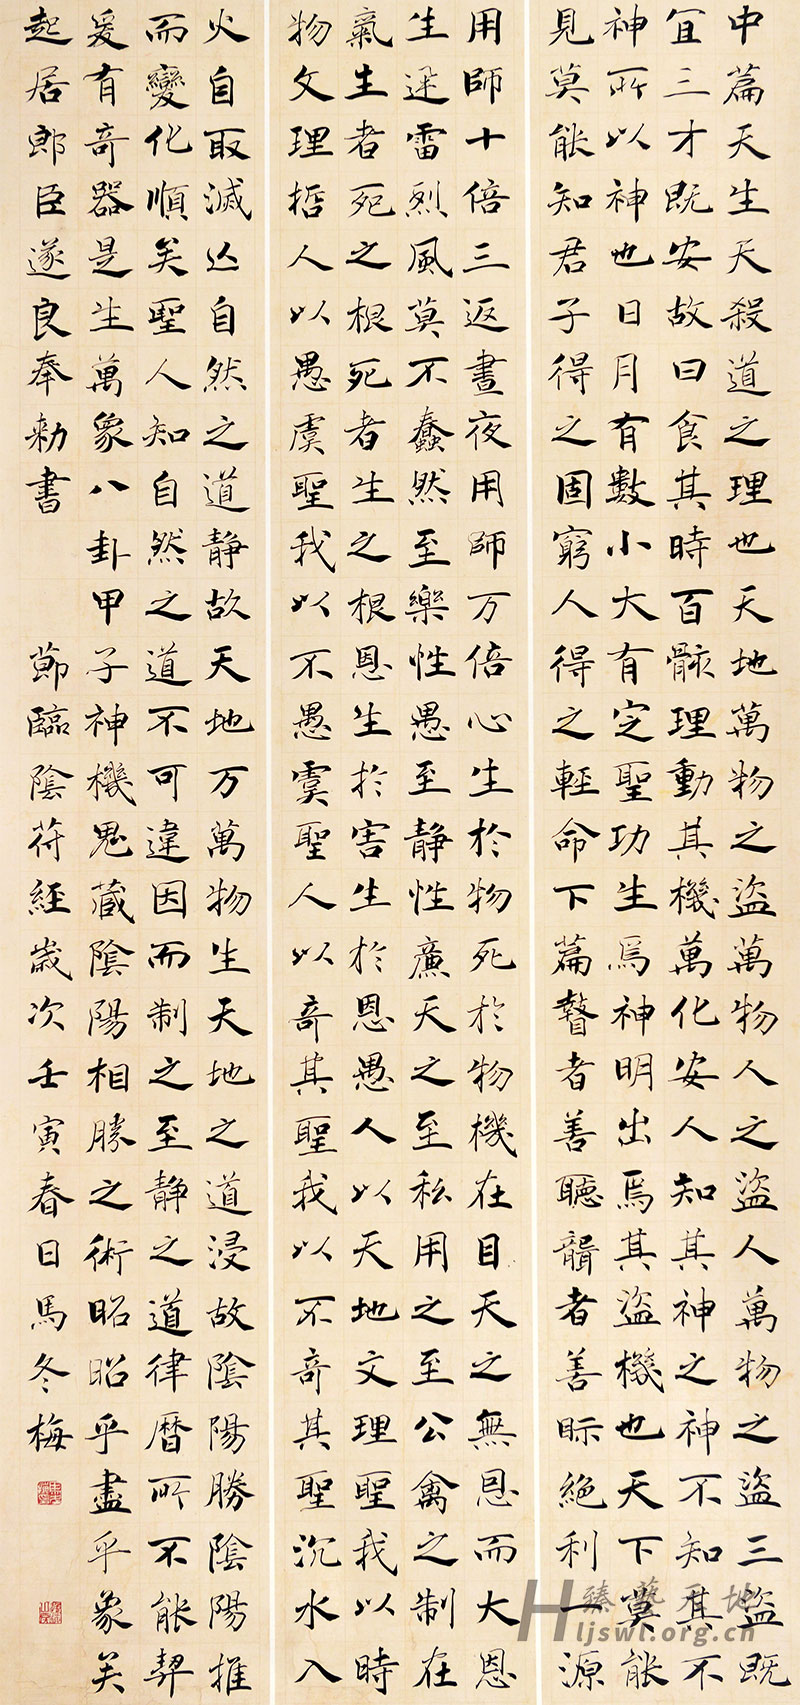 中篇天生天殺道之理也天地萬物之盜萬物人之盜人萬物之盜三盜既
宜三才既安故曰食其時百骸理動其機萬化安人知其神之神不知其不
神所以神也日月有數小大有定聖功生焉神明出焉其盜機也天下莫能
見莫能知君子得之固窮人得之輕命下篇瞽者善聽聾者善眎絕利一源
用師十倍三返晝夜用師万倍心生於物死於物機在目天之無恩而大恩
生迅雷烈風莫不蠢然至樂性愚至靜性廉天之至私用之至公禽之制在
氣生者死之根死者生之根恩生於害生於恩愚人以天地文理聖我以時
物文理哲人以愚虞聖我以不愚虞聖人以奇其聖我以不奇其聖沉水入
火自取滅亡自然之道靜故天地万萬物生天地之道浸故陰陽勝陰陽推
而變化順矣聖人知自然之道不可違因而制之至靜之道律曆所不能契
爰有奇器是生萬象八卦甲子神機鬼藏陰陽相勝之術昭昭乎盡乎象矣
起居郎臣遂良奉勅書 節臨陰符經歲次壬寅春日馬冬梅
臻藝天地
Hljswl.org.cn